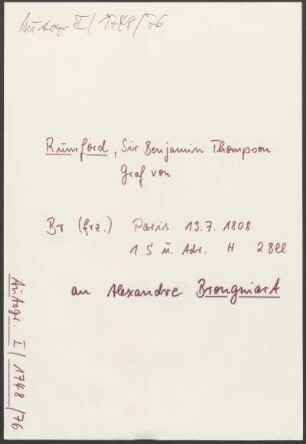 Autogr. I/1748/76
Rumford, Sir Benjamin Thompson
Graf von
Br (frz.) Paris 13.7.1808
1 S u. Adr. H 2 Bll
an Alexandre Brongniart
Autogr. I/1748/76